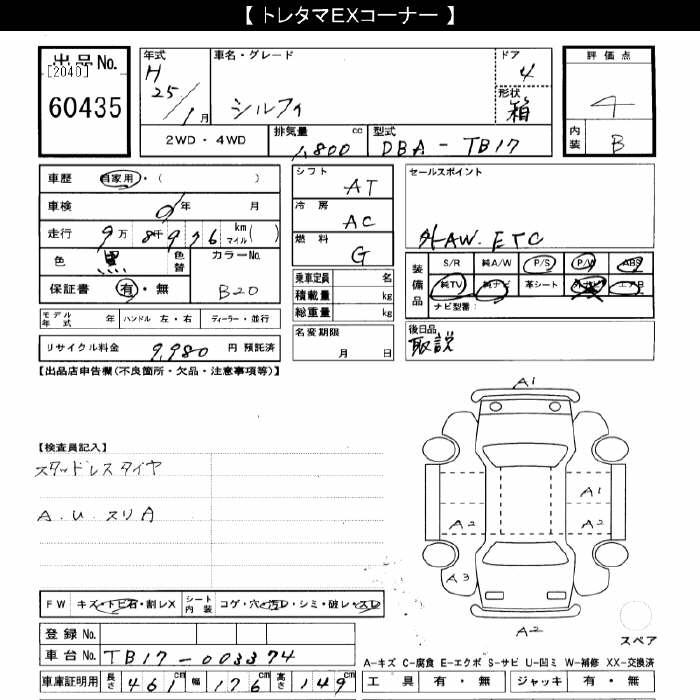 【 トレタマEXコーナー 】
出品No.
[2040]
60435
年式
H
25/1月
車名・グレード
シルフィ
ドア
4
形状
箱
評価点
4
内装
B
2WD・4WD
排気量 cc
1,800
型式
DBA - TB17
車歴 自家用・( )
車検 年 月
走行 9万8千976 km マイル( )
色 黒 色替
カラーNo.
B20
保証書 有・無
モデル年式 年 ハンドル 左・右 ディーラー・並行
リサイクル料金 9,980 円 預託済
シフト
AT
冷房
AC
燃料
G
乗車定員 名
積載量 kg
総重量 kg
名変期限
月 日
セールスポイント
外AW. ETC
装備品
S/R 純A/W P/S P/W ABS
純TV 純ナビ 革シート 外ナビ エアB
ナビ型番:
後日品
取説
【出品店申告欄(不良箇所・欠品・注意事項等)】
【検査員記入】
スタッドレスタイヤ
A.U.スリA
A1
A1
A2
A2
A3
A2
スペア
FW キズ・トビ石・割レX シート内装 コゲ・穴・汚レ・シミ・破レ・スレ
登録No.
車台No. TB17-003374
車庫証明用 長さ 461cm 幅 176cm 高さ 149cm
A-キズ C-腐食 E-エクボ S-サビ U-凹ミ W-補修 XX-交換済
工具 有・無 ジャッキ 有・無